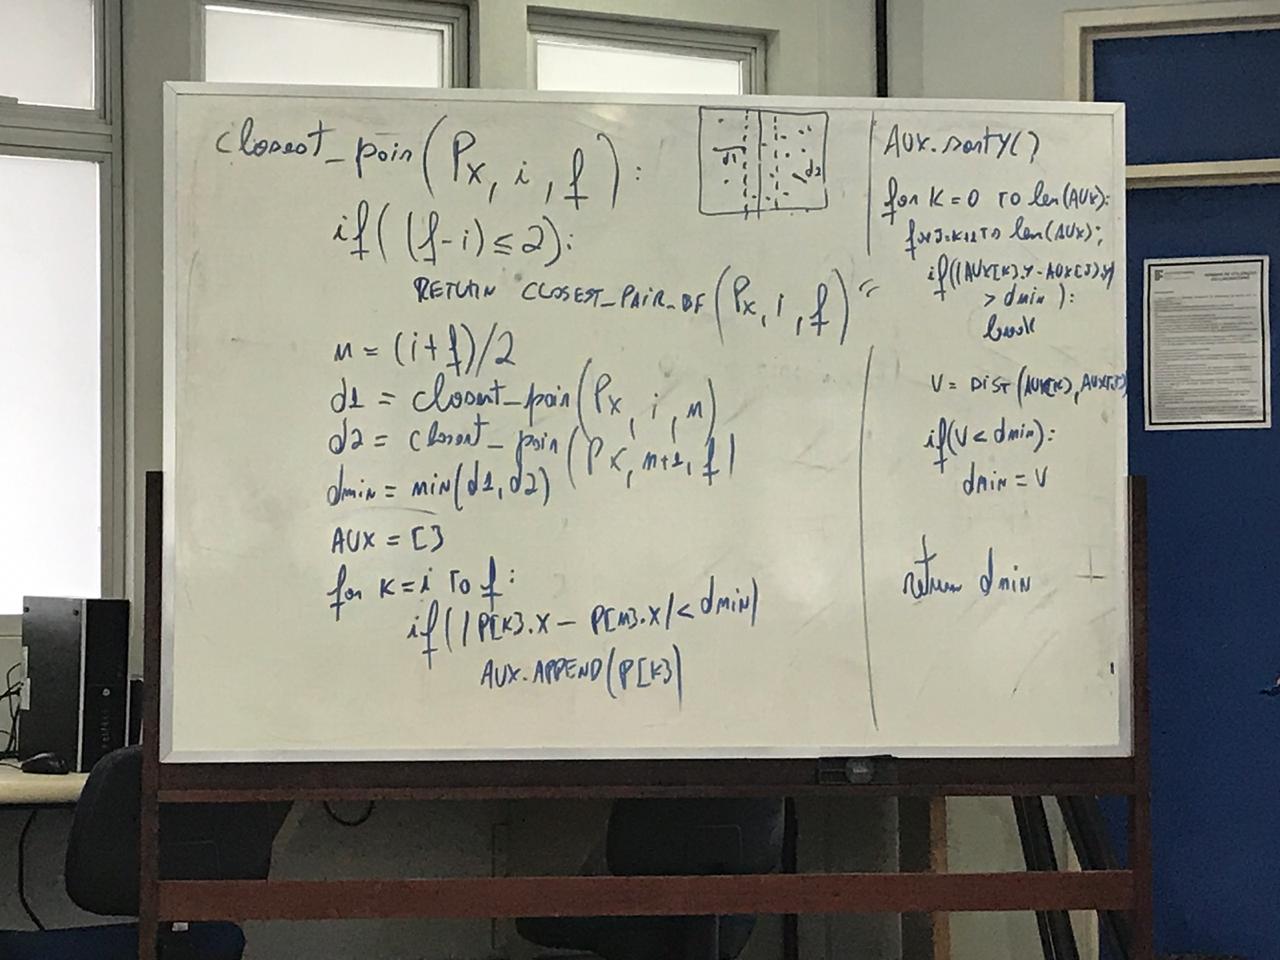 closest_pair(Px, i, f):
if((f-i)≤2):
RETURN CLOSEST_PAIR_BF(Px, i, f)
m = (i+f)/2
d1 = closest_pair(Px, i, m)
d2 = closest_pair(Px, m+1, f)
dmin = min(d1,d2)
AUX = []
for K=i TO f:
if(|P[K].X - P[m].X|<dmin)
AUX.APPEND(P[K])
d1
d2
AUX.sortY()
for K=0 TO len(AUX):
for J=K+1 TO len(AUX):
if(|AUX[K].Y-AUX[J].Y|
> dmin):
break
V = DIST(AUX[K], AUX[J])
if(V<dmin):
dmin = V
return dmin